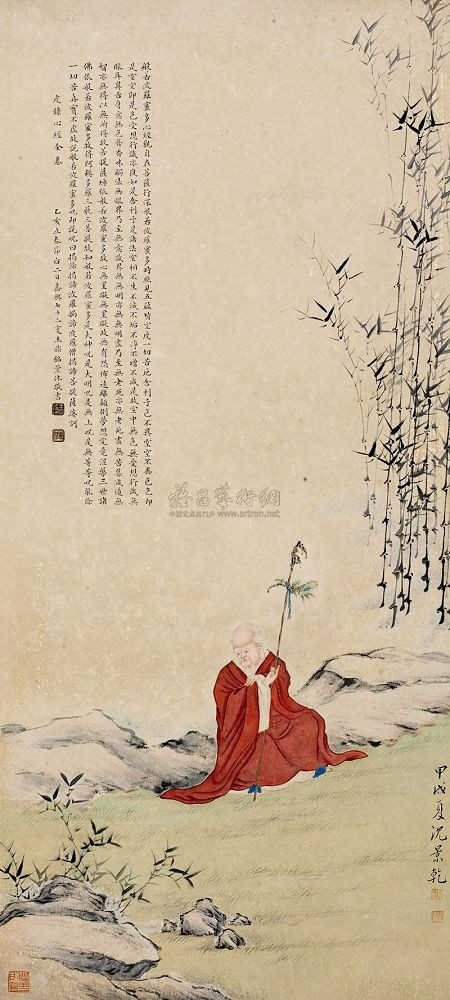 般若波羅蜜多心經觀自在菩薩行深般若波羅蜜多時照見五蘊皆空度一切苦厄舍利子色不異空空不異色色即
是空空即是色受想行識亦復如是舍利子是諸法空相不生不滅不垢不淨不增不減是故空中無色無受想行識無
眼耳鼻舌身意無色聲香味觸法無眼界乃至無意識界無無明亦無無明盡乃至無老死亦無老死盡無苦集滅道無
智亦無得以無所得故菩提薩埵依般若波羅蜜多故心無罣礙無罣礙故無有恐怖遠離顛倒夢想究竟涅槃三世諸
佛依般若波羅蜜多故得阿耨多羅三藐三菩提故知般若波羅蜜多是大神呪是大明呪是無上呪是無等等呪能除
一切苦真實不虛故說般若波羅蜜多呪即說呪曰揭諦揭諦波羅揭諦波羅僧揭諦菩提薩婆訶
虔錄心經全卷
乙亥立春節後二日嘉興七十二叟沐敬書
甲戌夏沈景乾
雅昌藝術網
中国艺术品门户 www.artron.net